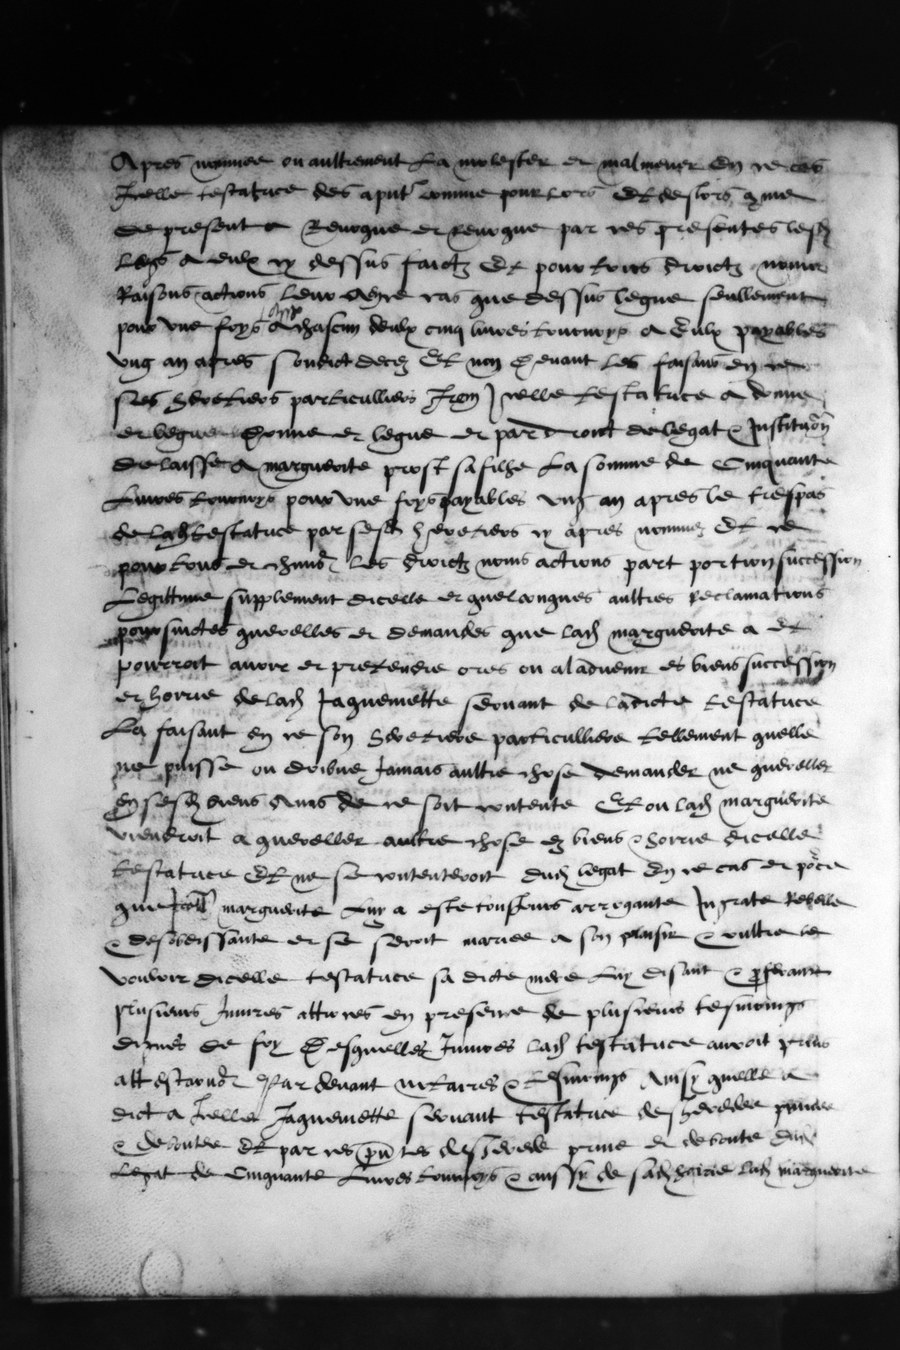 Apres nommee ou aultrement La molester et malmener En ce cas
Icelle testatrice des a put comme pour lors Et des lors come
de present a Revoque et revoque par ces presentes lesd
legs a eulx cy dessus faictz Et pour tous droictz noms
Raisons actions leur legue seullement
pour une foys a chascun deulx cinq livres tournoys a Eulx payables
ung an apres sondict decez Et non devant Les faisant en ce
ses heretiers particulliers Item Icelle testatrice a donne
et legue Donne et legue et par droict de legat & Institution
delaisse a marguerite prost sa filhe La somme de Cinquante
Livres tournoys pour une foys payables ung an apres le trespas
de lad testatrice par sesd heretiers cy apres nommez Et ce
pour tous et chuns Les droictz noms actions part portion succession
Legittime supplement dicelle et quelconques aultres reclamations
poursuictes querelles et demandes que lad marguerite a Et
pourroit avoir et pretendre ores ou a ladvenir es biens succession
et horrie de lad Jaquemette servant de ladicte testatrice
La faisant en ce son heretiere particulliere tellement quelle
ne puisse ou doibve Jamais aultre chose demander ne quereller
En sesd biens Ains de ce soit contente Et ou lad marguerite
viendroit a quereller aultre chose ez biens & horrie dicelle
testatrice Et ne se contenteroit dud legat En ce cas et
que marguerite Luy a este tousjours arrogante Ingrate Rebelle
& desobeissante et se seroit mariee a son plaisir & oultre le
vouloir dicelle testatrice sa dicte mere Luy disant & proferant
plusieurs Injures attroces en presence de plusieurs tesmoings
dignes de foy Desquelles Injures lad testatrice auroit prins
attestaon Par devant notaires & tesmoings Ainsy quelle a
dict a Icelle Jaquemette servant testatrice desheredee privee
& deboutee Et par ces pntes desherede prive et deboute dud
Legat de Cinquante Livres tournoys & aussy de sad hoirie lad marguerite